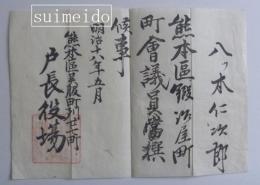 suimeido
八ツ木仁次郎
熊本區鍛冶屋町
町會議員當撰
候事
明治十八年五月
熊本區呉服町外廿二町
戸長役場